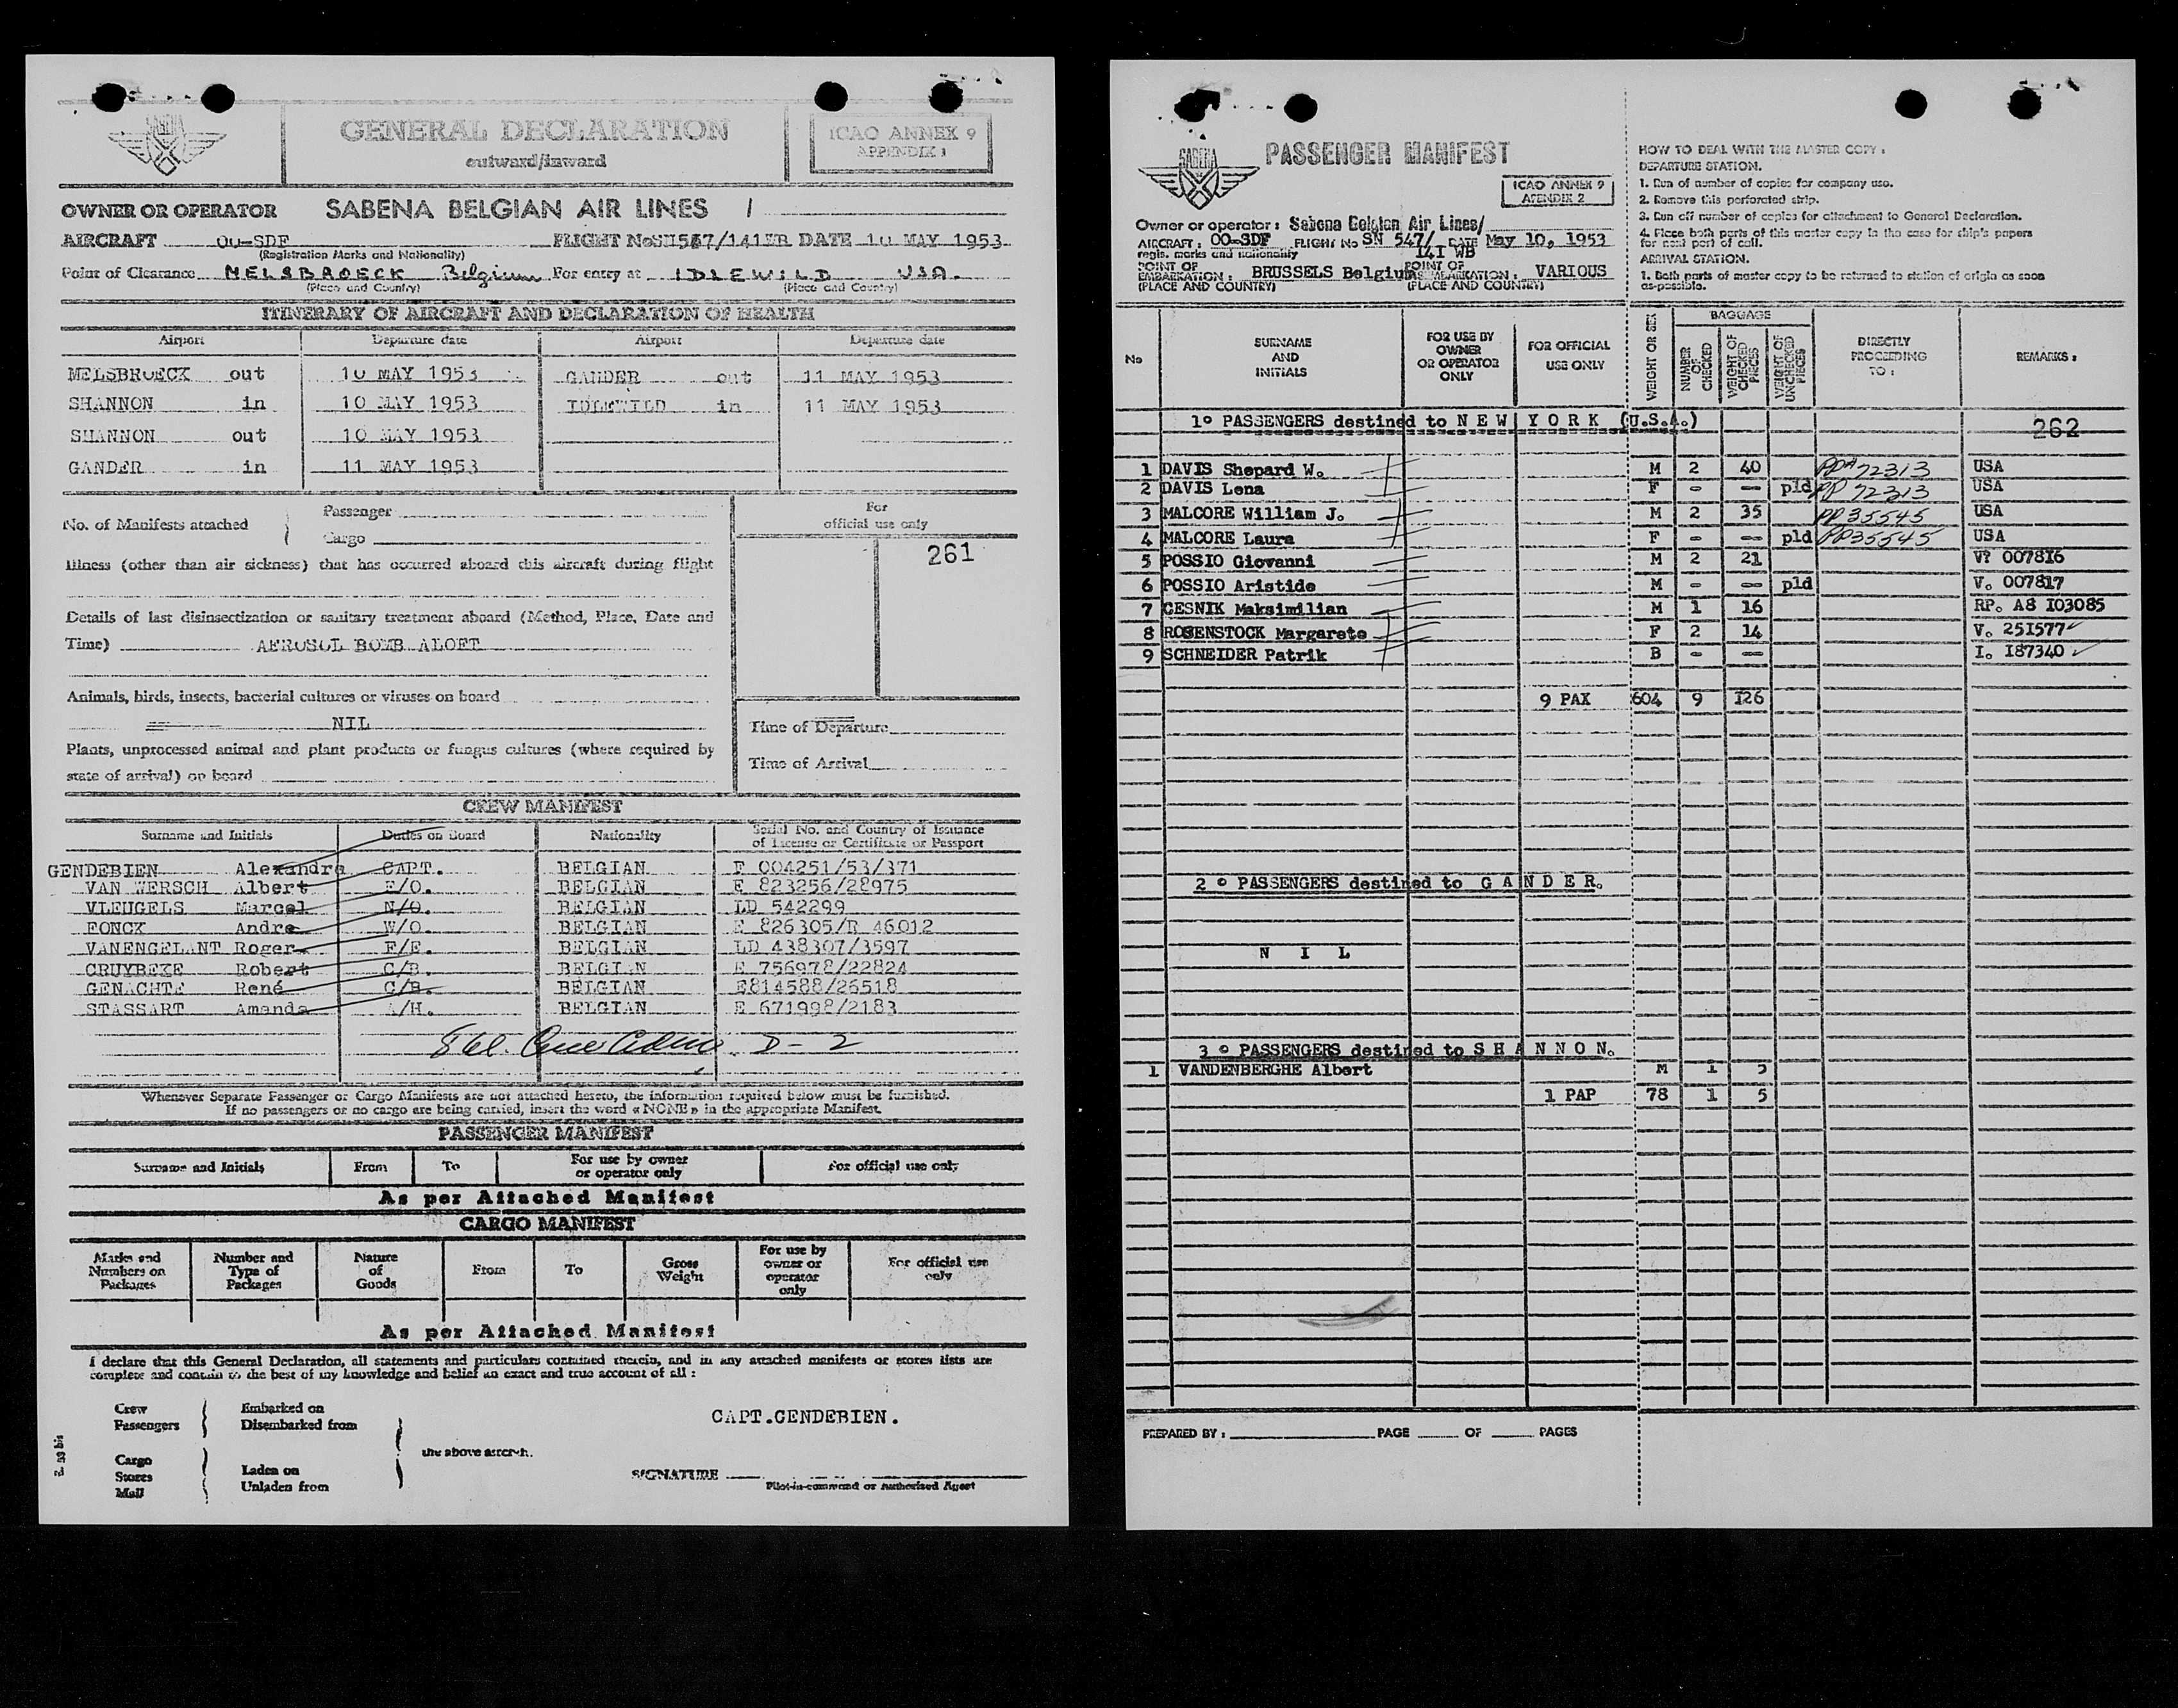 SABENA
GENERAL DECLARATION
outward/inward
ICAO ANNEX 9
APPENDIX 1
OWNER OR OPERATOR SABENA BELGIAN AIR LINES /
AIRCRAFT OO-SDF FLIGHT No SN547/141WB DATE 10 MAY 1953
(Registration Marks and Nationality)
Point of Clearance MELSBROECK Belgium For entry at IDLEWILD USA.
(Place and Country) (Place and Country)
ITINERARY OF AIRCRAFT AND DECLARATION OF HEALTH
Airport Departure date Airport Departure date
MELSBROECK out 10 MAY 1953 GANDER out 11 MAY 1953
SHANNON in 10 MAY 1953 IDLEWILD in 11 MAY 1953
SHANNON out 10 MAY 1953
GANDER in 11 MAY 1953
No. of Manifests attached
Passenger
Cargo
For
official use only
261
Illness (other than air sickness) that has occurred aboard this aircraft during flight
Details of last disinsectization or sanitary treatment aboard (Method, Place, Date and
Time) AEROSOL BOMB ALOFT
Animals, birds, insects, bacterial cultures or viruses on board
NIL
Plants, unprocessed animal and plant products or fungus cultures (where required by
state of arrival) on board
Time of Departure
Time of Arrival
CREW MANIFEST
Surname and Initials Duties on Board Nationality Serial No. and Country of Issuance
of License or Certificate or Passport
GENDEBIEN Alexandre CAPT. BELGIAN E 004251/53/371
VAN WERSCH Albert F/O. BELGIAN E 823256/28975
VLEUGELS Marcel N/O. BELGIAN LD 542299
FONCK Andre W/O. BELGIAN E 826305/R 46012
VANENGELANT Roger F/E. BELGIAN LD 438307/3597
CRUYBEKE Robert C/B. BELGIAN E 756978/22824
GENACHTE René C/B. BELGIAN E814588/26518
STASSART Amanda A/H. BELGIAN E 671998/2183
D-2
Whenever Separate Passenger or Cargo Manifests are not attached hereto, the information required below must be furnished.
If no passengers or no cargo are being carried, insert the word « NONE » in the appropriate Manifest.
PASSENGER MANIFEST
Surname and Initials From To For use by owner
or operator only For official use only
As per Attached Manifest
CARGO MANIFEST
Marks and
Numbers on
Packages
Number and
Type of
Packages
Nature
of
Goods
From
To
Gross
Weight
For use by
owner or
operator
only
For official use
only
As per Attached Manifest
I declare that this General Declaration, all statements and particulars contained therein, and in any attached manifests or stores lists are
complete and contain to the best of my knowledge and belief an exact and true account of all :
Crew
Passengers
Embarked on
Disembarked from
Cargo
Stores
Mail
Laden on
Unladen from
the above aircraft.
CAPT.GENDEBIEN.
SIGNATURE
Pilot-in-command or Authorised Agent
SABENA
PASSENGER MANIFEST
ICAO ANNEX 9
APENDIX 2
Owner or operator : Sabena Belgian Air Lines/
AIRCRAFT : OO-SDF FLIGHT No SN 547/ DATE May 10, 1953
regis. marks and nationality 141 WB
POINT OF
EMBARKATION : BRUSSELS Belgium POINT OF
DISEMBARKATION : VARIOUS
(PLACE AND COUNTRY) (PLACE AND COUNTRY)
HOW TO DEAL WITH THE MASTER COPY :
DEPARTURE STATION.
1. Run of number of copies for company use.
2. Remove this perforated strip.
3. Run off number of copies for attachment to General Declaration.
4. Place both parts of this master copy in the case for ship's papers
for next port of call.
ARRIVAL STATION.
1. Both parts of master copy to be returned to station of origin as soon
as-possible.
No
SURNAME
AND
INITIALS
FOR USE BY
OWNER
OR OPERATOR
ONLY
FOR OFFICIAL
USE ONLY
WEIGHT OR SEX
BAGGAGE
NUMBER OF CHECKED
WEIGHT OF CHECKED PIECES
WEIGHT OF UNCHECKED PIECES
DIRECTLY
PROCEEDING
TO :
REMARKS :
1° PASSENGERS destined to NEW YORK (U.S.A.)
262
1 DAVIS Shepard W. M 2 40 PPA 72313 USA
2 DAVIS Lena F - -- pld PP 72313 USA
3 MALCORE William J. M 2 35 PP 35545 USA
4 MALCORE Laura F - -- pld PP35545 USA
5 POSSIO Giovanni M 2 21 V? 007816
6 POSSIO Aristide M - -- pld V. 007817
7 CESNIK Maksimilian M 1 16 RP. A8 I03085
8 ROSENSTOCK Margarete F 2 14 V. 251577
9 SCHNEIDER Patrik B - -- I. I87340
9 PAX 604 9 126
2° PASSENGERS destined to GANDER.
N I L
3° PASSENGERS destined to SHANNON.
1 VANDENBERGHE Albert M 1 5
1 PAP 78 1 5
PREPARED BY : PAGE OF PAGES